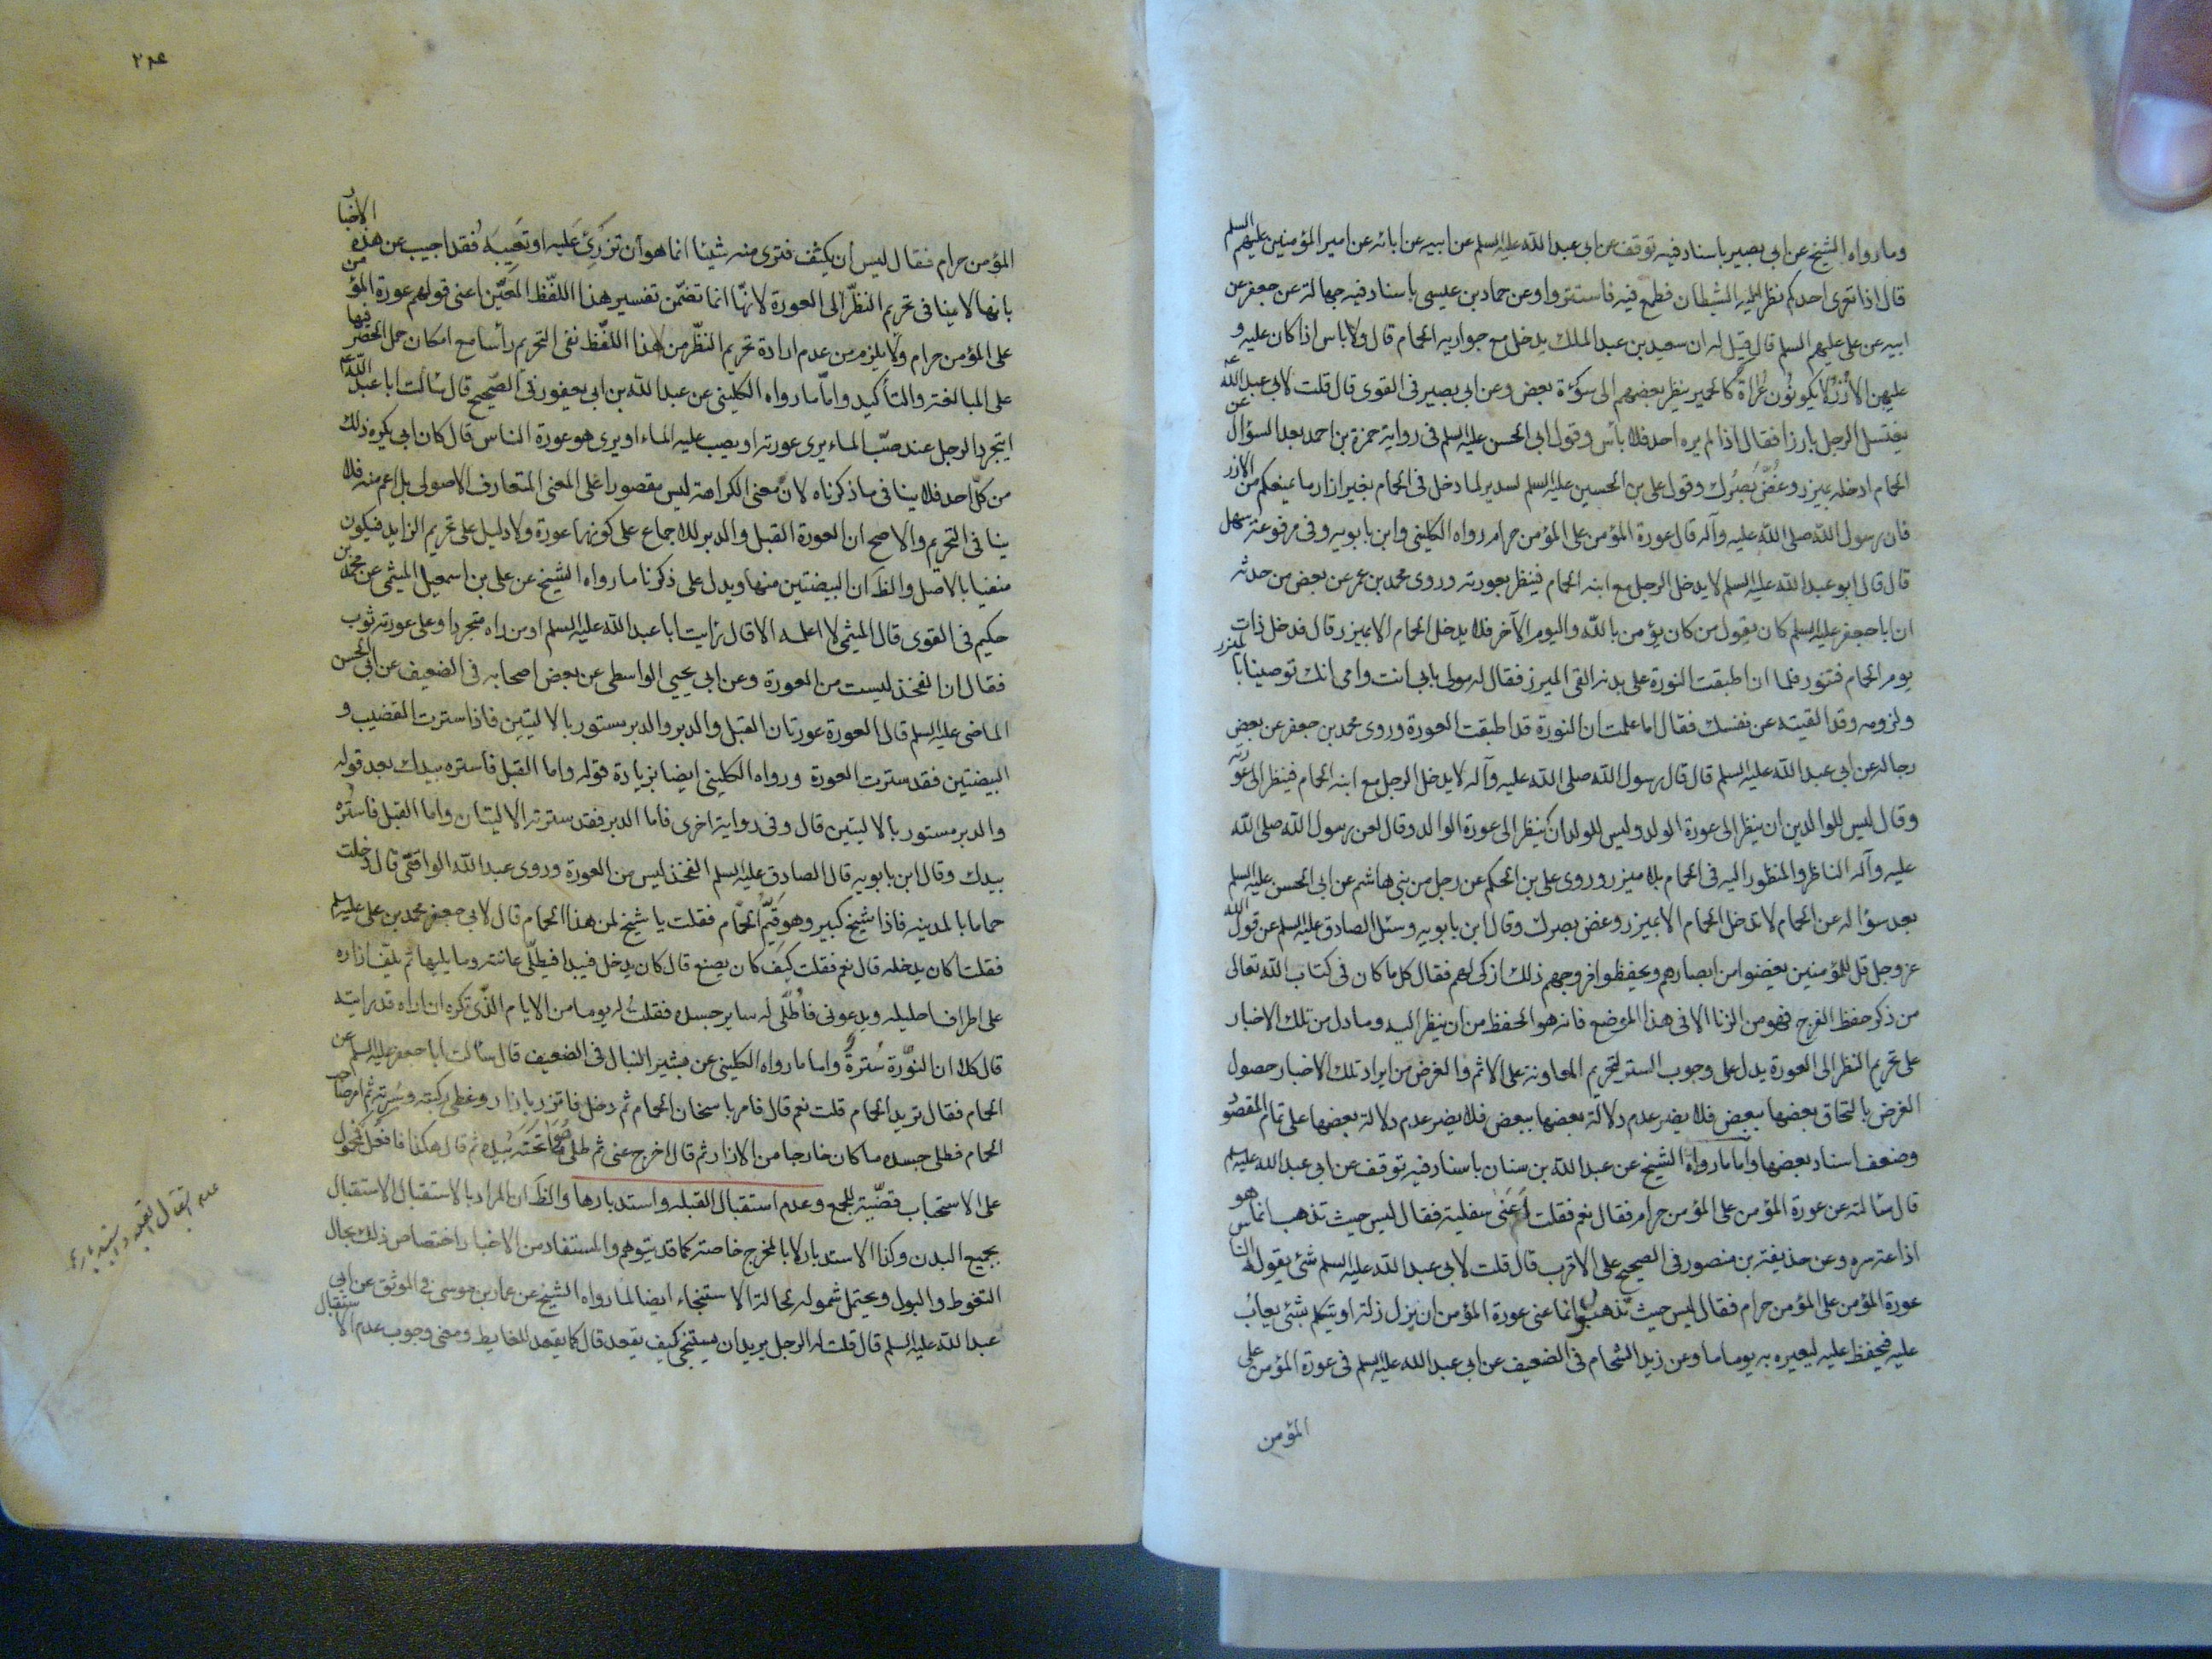 وما رواه الشيخ عن ابي بصير باسناد فيه توقف عن ابي عبد الله عليه السلم عن ابيه عن ابائه عن امير المؤمنين عليهم السلم
قال اذا تعرى احدكم نظر اليه الشيطان فطمع فيه فاستتروا وعن حماد بن عيسى باسناد فيه جهالة عن جعفر عن
ابيه عن علي عليهم السلم قال قيل له ان سعيد بن عبد الملك يدخل مع جواريه الحمام قال ولا باس اذا كان عليه و
عليهن الازر لا يكونون عراة كالحمير ينظر بعضهم الى سوءة بعض وعن ابي بصير في القوى قال قلت لابي عبد الله ع
يغتسل الرجل بارزا فقال اذا لم يره احد فلا باس وقول ابي الحسن عليه السلم في رواية حمزة بن احمد بعد السؤال عن
الحمام ادخله بميزر وغض بصرك وقول علي بن الحسين عليه السلم لسدير لما دخل في الحمام بغير ازار ما يمنعكم من الازر
فان رسول الله صلى الله عليه وآله قال عورة المؤمن على المؤمن حرام رواه الكليني وابن بابويه وفي مرفوعة سهل
قال قال ابو عبد الله عليه السلم لا يدخل الرجل مع ابنه الحمام فينظر بعورته وروى محمد بن عمر عن بعض من حدثه
ان ابا جعفر عليه السلم كان يقول من كان يؤمن بالله واليوم الآخر فلا يدخل الحمام الا بميزر قال فدخل ذات
يوم الحمام فتنور فلما ان اطبقت النورة على بدنه القى الميزر فقال له مولى بابي انت وامي انك توصينا بالميزر
ولزومه وقد القيته عن نفسك فقال اما علمت ان النورة قد اطبقت العورة وروى محمد بن جعفر عن بعض
رجاله عن ابي عبد الله عليه السلم قال قال رسول الله صلى الله عليه وآله لا يدخل الرجل مع ابنه الحمام فينظر الى عورته
وقال ليس للوالدين ان ينظر الى عورة الولد وليس للولد ان ينظر الى عورة الوالد وقال لعن رسول الله صلى الله
عليه وآله الناظر والمنظور اليه في الحمام بلا ميزر وروى علي بن الحكم عن رجل من بني هاشم عن ابي الحسن عليه السلم
بعد سؤاله عن الحمام لا تدخل الحمام الا بميزر وغض بصرك وقال ابن بابويه وسئل الصادق عليه السلم عن قول الله
عز وجل قل للمؤمنين يغضوا من ابصارهم ويحفظوا فروجهم ذلك ازكى لهم فقال كل ما كان في كتاب الله تعالى
من ذكر حفظ الفرج فهو من الزنا الا في هذا الموضع فانه هو الحفظ من ان ينظر اليه وما دل من تلك الاخبار
على تحريم النظر الى العورة يدل على وجوب الستر لتحريم المعاونة على الاثم والغرض من ايراد تلك الاخبار حصول
الغرض بالتحاق بعضها ببعض فلا يضر عدم دلالة بعضها ببعض فلا يضر عدم دلالة بعضها على تمام المقصو
وضعف اسناد بعضها واما ما رواه الشيخ عن عبد الله بن سنان باسناد فيه توقف عن ابي عبد الله عليه السلم
قال سألته عن عورة المؤمن على المؤمن حرام فقال نعم فقلت أعنى سفليه فقال ليس حيث تذهب انما هو
اذاعة سره وعن حذيفة بن منصور في الصحيح على الاقرب قال قلت لابي عبد الله عليه السلم شئ يقوله الناس
عورة المؤمن على المؤمن حرام فقال ليس حيث تذهب انما عنى عورة المؤمن ان يزل زلة او يتكلم بشئ يعاب
عليه فيحفظ عليه ليعيره به يوما ما وعن زيد الشحام في الضعيف عن ابي عبد الله عليه السلم في عورة المؤمن على
المؤمن
٢٨٤
المؤمن حرام فقال ليس أن يكشف فترى منه شيئا انما هو أن تزرئ عليه او تعيبه فقد اجيب عن هذه الاخبار
بانها لا ينافي تحريم النظر الى العورة لانها انما تضمن تفسير هذا اللفظ المعين اعنى قولهم عورة المؤمن
على المؤمن حرام ولا يلزم من عدم ارادة تحريم النظر من هذا اللفظ نفى التحريم رأسا مع امكان حمل الحصر فيها
على المبالغة والتأكيد واما ما رواه الكليني عن عبد الله بن ابي يعفور في الصحيح قال سألت ابا عبد الله ع
ايتجرد الرجل عند صب الماء يرى عورته او يصب عليه الماء او يرى هو عورة الناس قال كان ابي يكره ذلك
من كل احد فلا ينافي ما ذكرناه لان معنى الكراهة ليس مقصورا على المعنى المتعارف الاصولي بل اعم منه فلا
ينافي التحريم والاصح ان العورة القبل والدبر للاجماع على كونهما عورة ولا دليل على تحريم الزايد فيكون
منفيا بالاصل والظ ان البيضتين منها ويدل على ذكرنا ما رواه الشيخ عن علي بن اسمعيل الميثمي عن محمد بن
حكيم في القوى قال الميثمي لا اعلمه الا قال رأيت ابا عبد الله عليه السلم او من راه متجردا وعلى عورته ثوب
فقال ان الفخذ ليست من العورة وعن ابي يحيى الواسطي عن بعض اصحابه في الضعيف عن ابي الحسن
الماضي عليه السلم قال العورة عورتان القبل والدبر والدبر مستور بالاليتين فاذا سترت القضيب و
البيضتين فقد سترت العورة ورواه الكليني ايضا بزيادة قوله واما القبل فاستره بيدك بعد قوله
والدبر مستور بالاليتين قال وفي رواية اخرى فاما الدبر فقد سترته الاليتان واما القبل فاستره
بيدك وقال ابن بابويه قال الصادق عليه السلم الفخذ ليس من العورة وروى عبد الله الوافقي قال دخلت
حماما بالمدينه فاذا شيخ كبير وهو قيم الحمام فقلت يا شيخ لمن هذا الحمام قال لابي جعفر محمد بن علي عليه السلم
فقلت أكان يدخله قال نعم فقلت كيف كان يصنع قال كان يدخل فيبدا فيطلي عانته وما يليها ثم يلف ازاره
على اطراف احليله ويدعوني فأطلي له ساير جسده فقلت له يوما من الايام الذي تكره ان اراه قد رايته
قال كلا ان النورة سترة واما ما رواه الكليني عن بشير النبال في الضعيف قال سألت ابا جعفر عليه السلم عن
الحمام فقال تريد الحمام قلت نعم قال فامر باسخان الحمام ثم دخل فاتزر بازار وغطى ركبته وسرته ثم امر صاحب
الحمام فطلى جسده ما كان خارجا من الازار ثم قال اخرج عنى ثم طلى هو ما تحته بيده ثم قال هكذا فافعل فمحمول
على الاستحباب قضية للجمع وعدم استقبال القبله واستدبارها والظ ان المراد بالاستقبال الاستقبال
بجميع البدن وكذا الاستدبار لا بالمخرج خاصة كما قد يتوهم والمستفاد من الاخبار اختصاص ذلك بحال
التغوط والبول ويحتمل شموله لحالة الاستنجاء ايضا لما رواه الشيخ عن عمار بن موسى في الموثق عن ابي
عبد الله عليه السلم قال قلت له الرجل يريد ان يستنجي كيف يقعد قال كما يقعد للغايط ومعنى وجوب عدم الاستقبال
عدم استقبال القبله واستدبارها